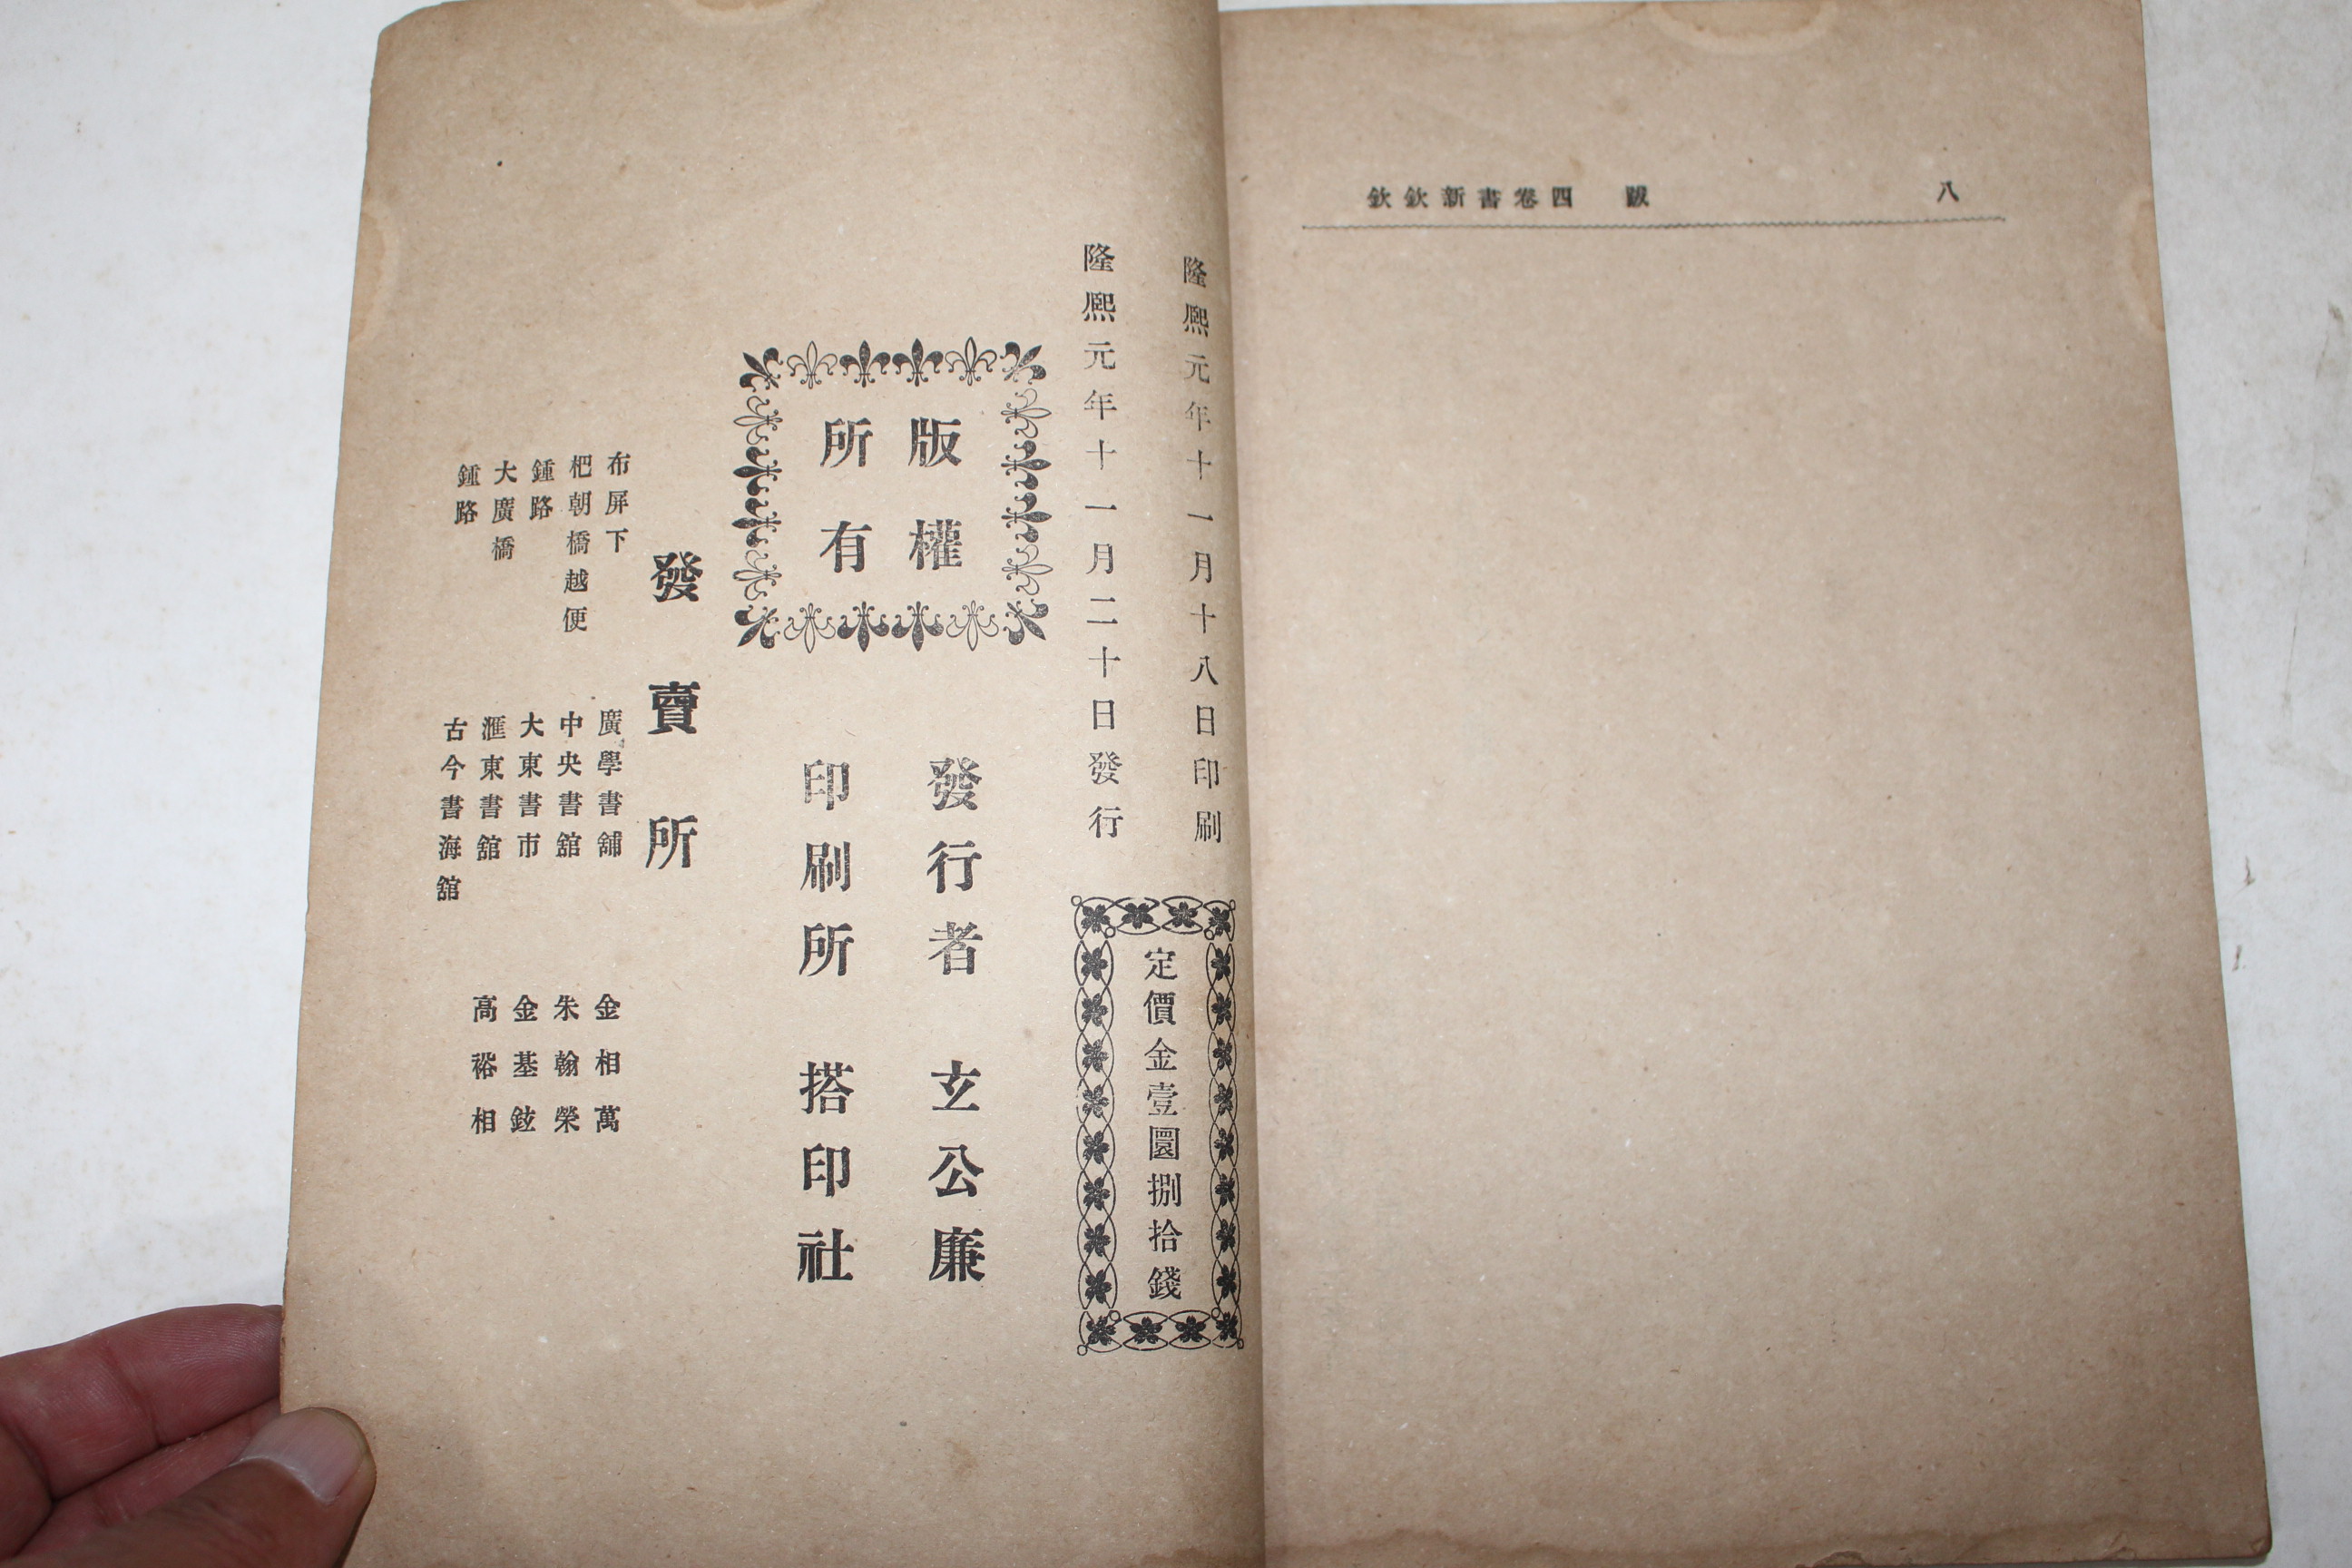 欽欽新書卷四 跋 八
隆熙元年十一月十八日印刷
隆熙元年十一月二十日發行
定價金壹圜捌拾錢
版權
所有
發行者 玄公廉
印刷所 搭印社
發賣所
布屏下 廣學書舖 金相萬
杷朝橋越便 中央書舘 朱翰榮
鍾路 大東書市 金基鉉
大廣橋 滙東書舘 高裕相
鍾路 古今書海舘